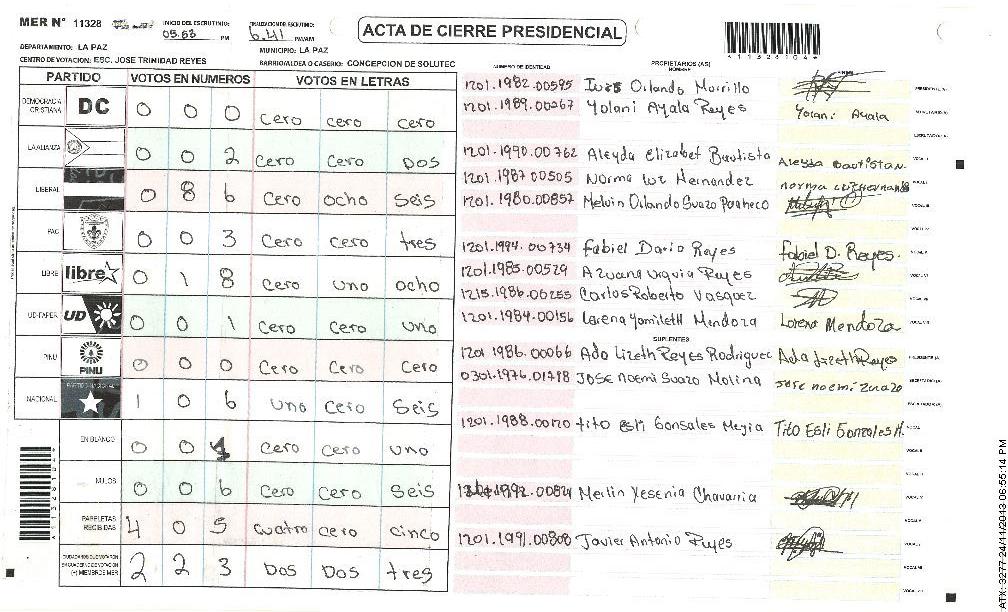 MER N° 11328
INICIO DEL ESCRUTINIO: 05.53 PM
FINALIZACION DE ESCRUTINIO: 6.41 PM/AM
ACTA DE CIERRE PRESIDENCIAL
DEPARTAMENTO: LA PAZ
MUNICIPIO: LA PAZ
CENTRO DE VOTACION: ESC. JOSE TRINIDAD REYES
BARRIO/ALDEA O CASERIO: CONCEPCION DE SOLUTEC
PARTIDO VOTOS EN NUMEROS VOTOS EN LETRAS
DEMOCRACIA CRISTIANA DC 0 0 0 Cero cero cero
LA ALIANZA 0 0 2 Cero Cero Dos
LIBERAL 0 8 6 Cero ocho Seis
PAC 0 0 3 Cero Cero tres
LIBRE libre 0 1 8 Cero uno ocho
UD-FAPER UD 0 0 1 Cero Cero uno
PINU PINU 0 0 0 Cero Cero Cero
NACIONAL 1 0 6 uno Cero Seis
EN BLANCO 0 0 1 Cero Cero uno
NULOS 0 0 6 Cero Cero Seis
PAPELETAS RECIBIDAS 4 0 5 Cuatro cero cinco
CIUDADANOS QUE VOTARON EN CUADERNO DE VOTACION (+) MIEMBROS MER 2 2 3 Dos Dos tres
NUMERO DE IDENTIDAD PROPIETARIOS (AS) NOMBRE FIRMA
1201.1982.00595 Orlando Morrillo
1201.1989.00267 Yolani Ayala Reyes Yolani Ayala
1201.1990.00762 Aleyda Elizabet Bautista Aleyda Bautista
1201.1987.00505 Norma luz Hernandez norma luz Hernandez
1201.1980.00857 Melvin Orlando Suazo Pacheco
1201.1994.00734 Fabiel Dario Reyes Fabiel D. Reyes.
1201.1985.00529 Reyes
1215.1986.00255 Carlos Roberto Vasquez
1201.1984.00156 Lorena Yamileth Mendoza Lorena Mendoza
SUPLENTES
1201 1986.00066 Ada Lizeth Reyes Rodriguez Ada Lizeth Reyes
0301.1976.01798 JOSE Noemi Suazo Molina Jose noemi Zuazo
1201.1988.00170 tito Esli Gonsales Mejia Tito Esli Gonzales M.
1992.00824 Merlin Yesenia Chavarria
1201.1991.00808 Javier Antonio Reyes
ATX: 3277-24/11/2013 06:55:14 PM